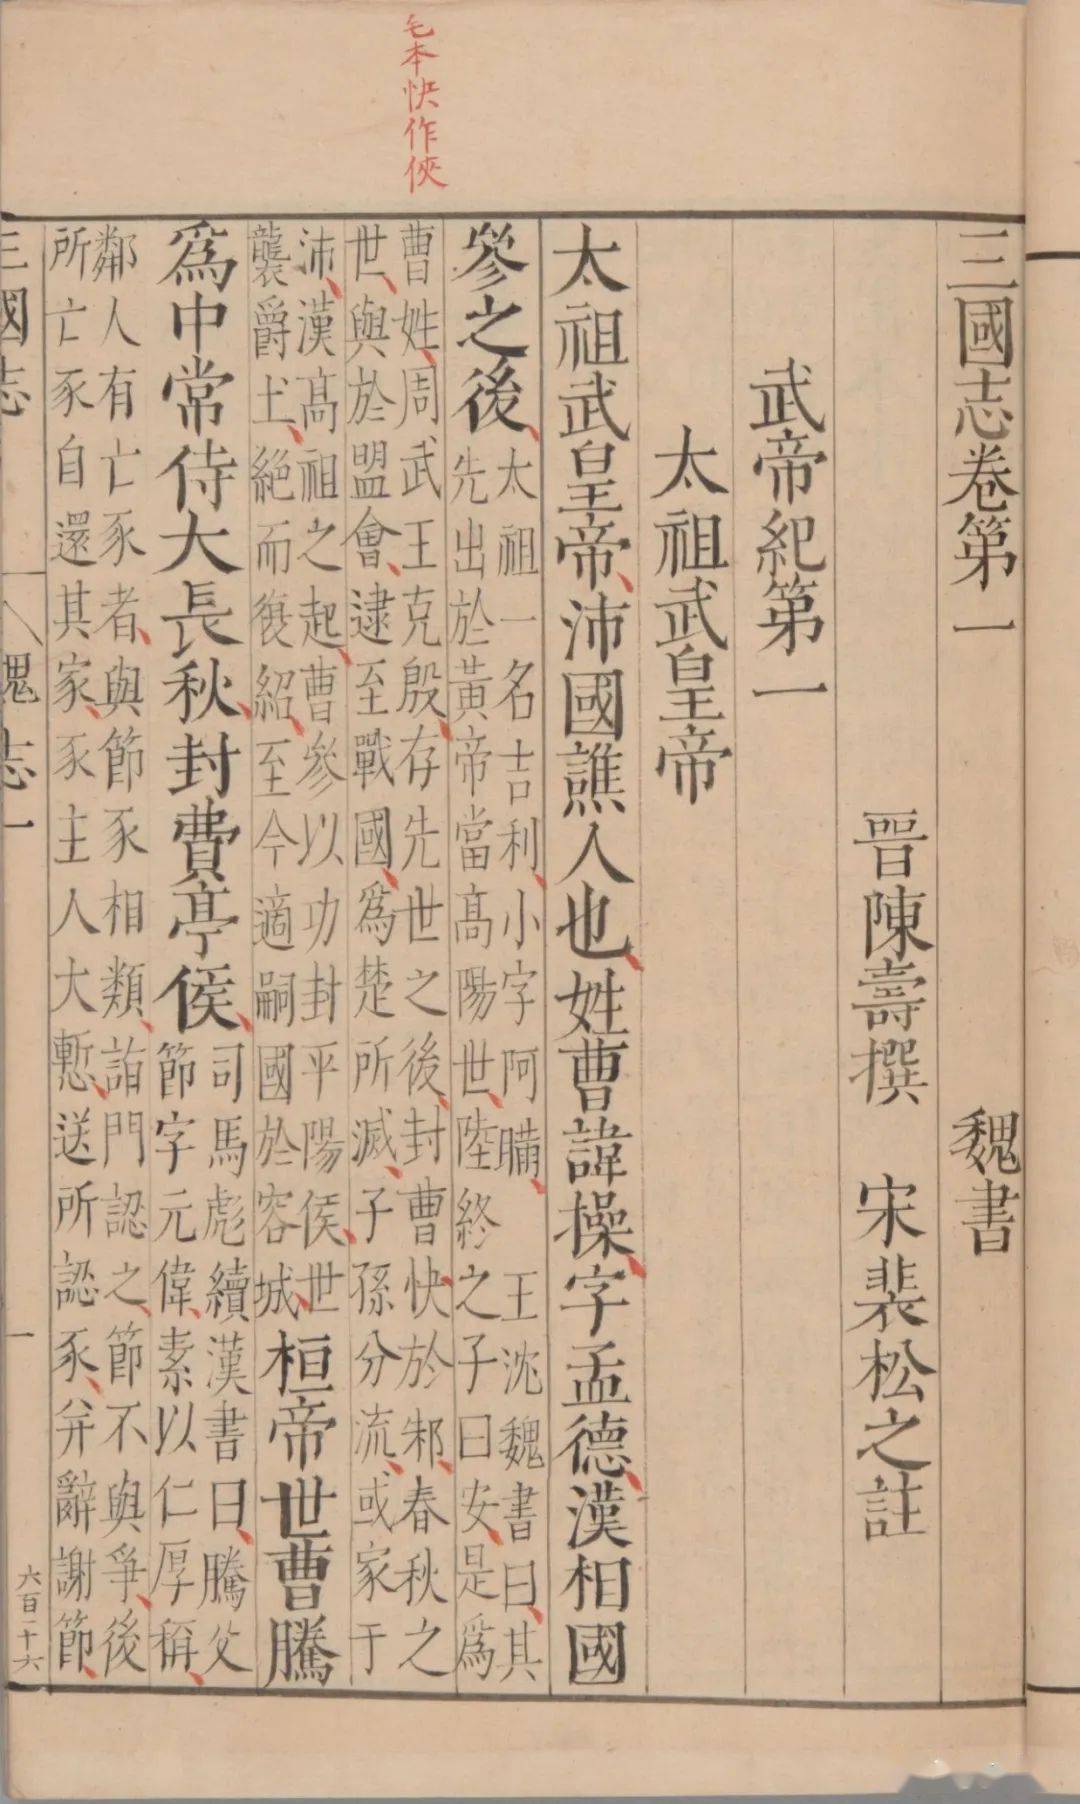 毛本快作俠
三國志卷第一 魏書
晉陳壽撰 宋裴松之註
武帝紀第一
太祖武皇帝
太祖武皇帝、沛國譙人也、姓曹諱操、字孟德、漢相國
參之後、
太祖一名吉利、小字阿瞞、王沈魏書曰、其
先出於黃帝當高陽世、陸終之子曰安、是爲
曹姓、周武王克殷、存先世之後、封曹快於邾、春秋之
世、與於盟會、逮至戰國、爲楚所滅、子孫分流、或家于
沛、漢高祖之起、曹參以功封平陽侯、世
襲爵土、絕而復紹、至今適嗣國於容城、
桓帝世曹騰
爲中常侍大長秋、封費亭侯、
司馬彪續漢書曰、騰父
節字元偉、素以仁厚稱、
鄰人有亡豕者、與節豕相類、詣門認之、節不與爭、後
所亡豕自還其家、豕主人大慙、送所認豕、幷辭謝節、
三國志 魏志一 一 六百一十六